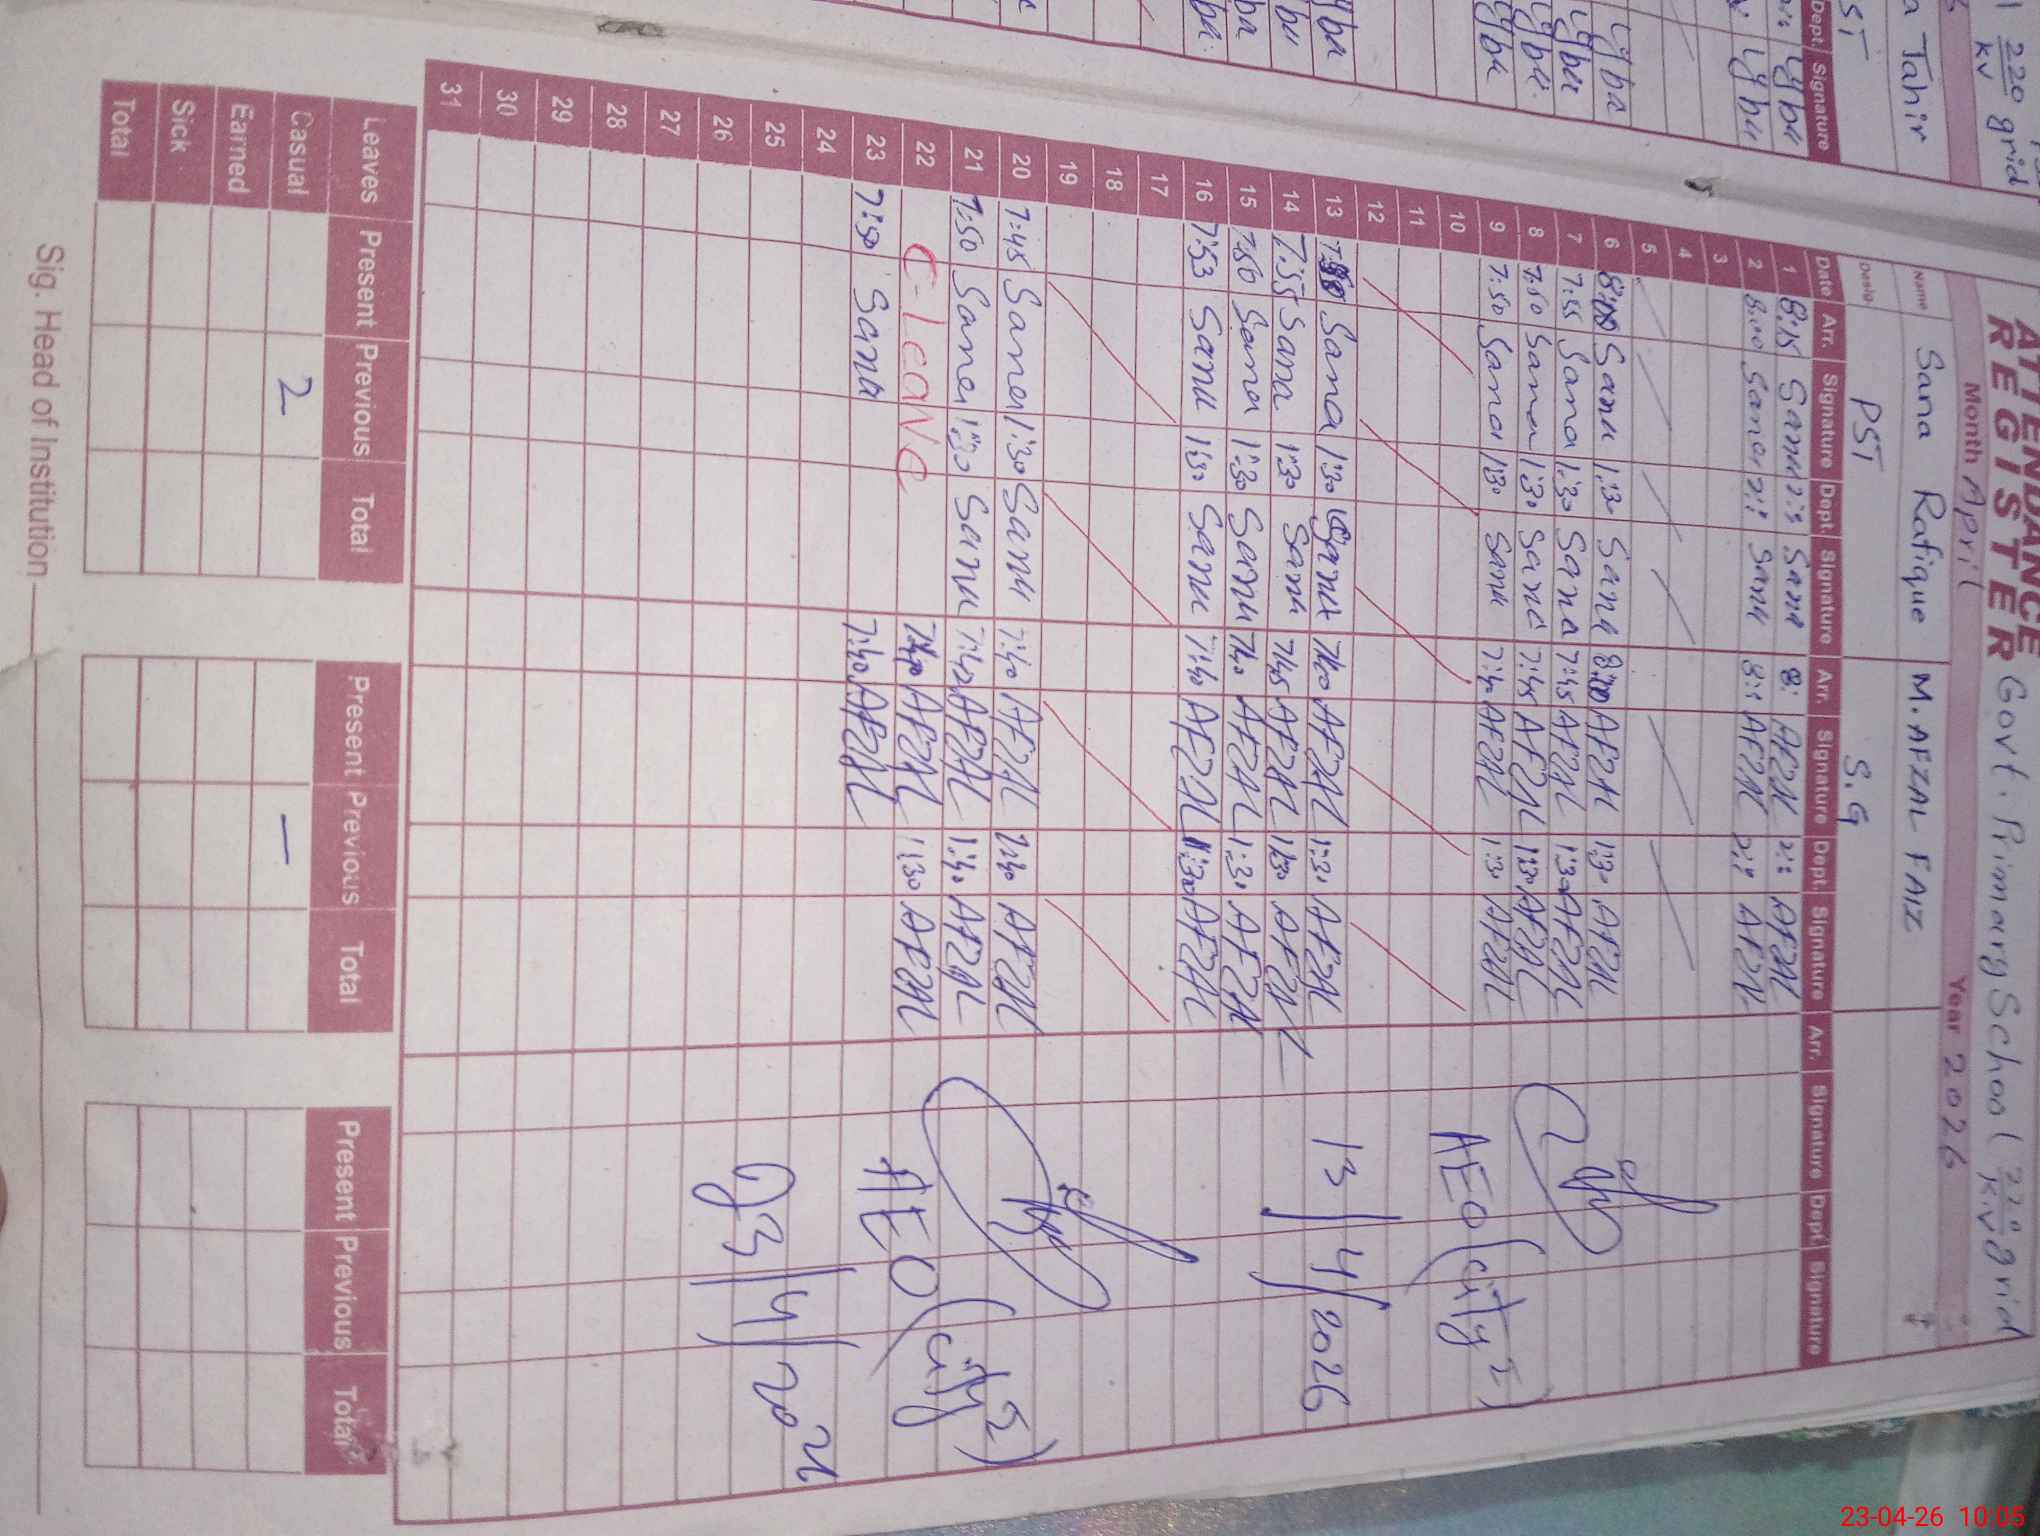 ATTENDANCE
REGISTER Govt. Primary School (220 kv grid
Month April Year 2026
Name Sana Rafique M. AFZAL FAIZ
Desig. PST S.G
Date Arr. Signature Dept. Signature Arr. Signature Dept. Signature Arr. Signature Dept. Signature
1 8:15 Sana Sana 8: AFZAL AFZAL
2 8:00 Sana Sana AFZAL AFZAL
3
4
5
6 Sana 1:30 Sana AFZAL 1:30 AFZAL
7 7:55 Sana 1:30 Sana 7:45 AFZAL 1:30 AFZAL
8 7:50 Sana 1:30 Sana 7:45 AFZAL 1:30 AFZAL
9 7:50 Sana 1:30 Sana 7:40 AFZAL 1:30 AFZAL
10
11
12
13 Sana 1:30 Sana 7:40 AFZAL 1:30 AFZAL
14 7:55 Sana 1:30 Sana 7:45 AFZAL 1:30 AFZAL
15 7:50 Sana 1:30 Sana 7:40 AFZAL 1:30 AFZAL
16 7:53 Sana 1:30 Sana 7:40 AFZAL 1:30 AFZAL
17
18
19
20 7:45 Sana 1:30 Sana 7:40 AFZAL AFZAL
21 7:50 Sana 1:30 Sana 7:40 AFZAL 1:30 AFZAL
22 C-Leave 7:40 AFZAL 1:30 AFZAL
23 7:50 Sana 7:40 AFZAL
24
25
26
27
28
29
30
31
AEO (city 2)
13/4/2026
AEO (city 2)
23/4/2026
Leaves Present Previous Total Present Previous Total Present Previous Total
Casual 2 —
Earned
Sick
Total
Sig. Head of Institution
220 kv grid
a Tahir
ST
Dept. Signature
23-04-26 10:05